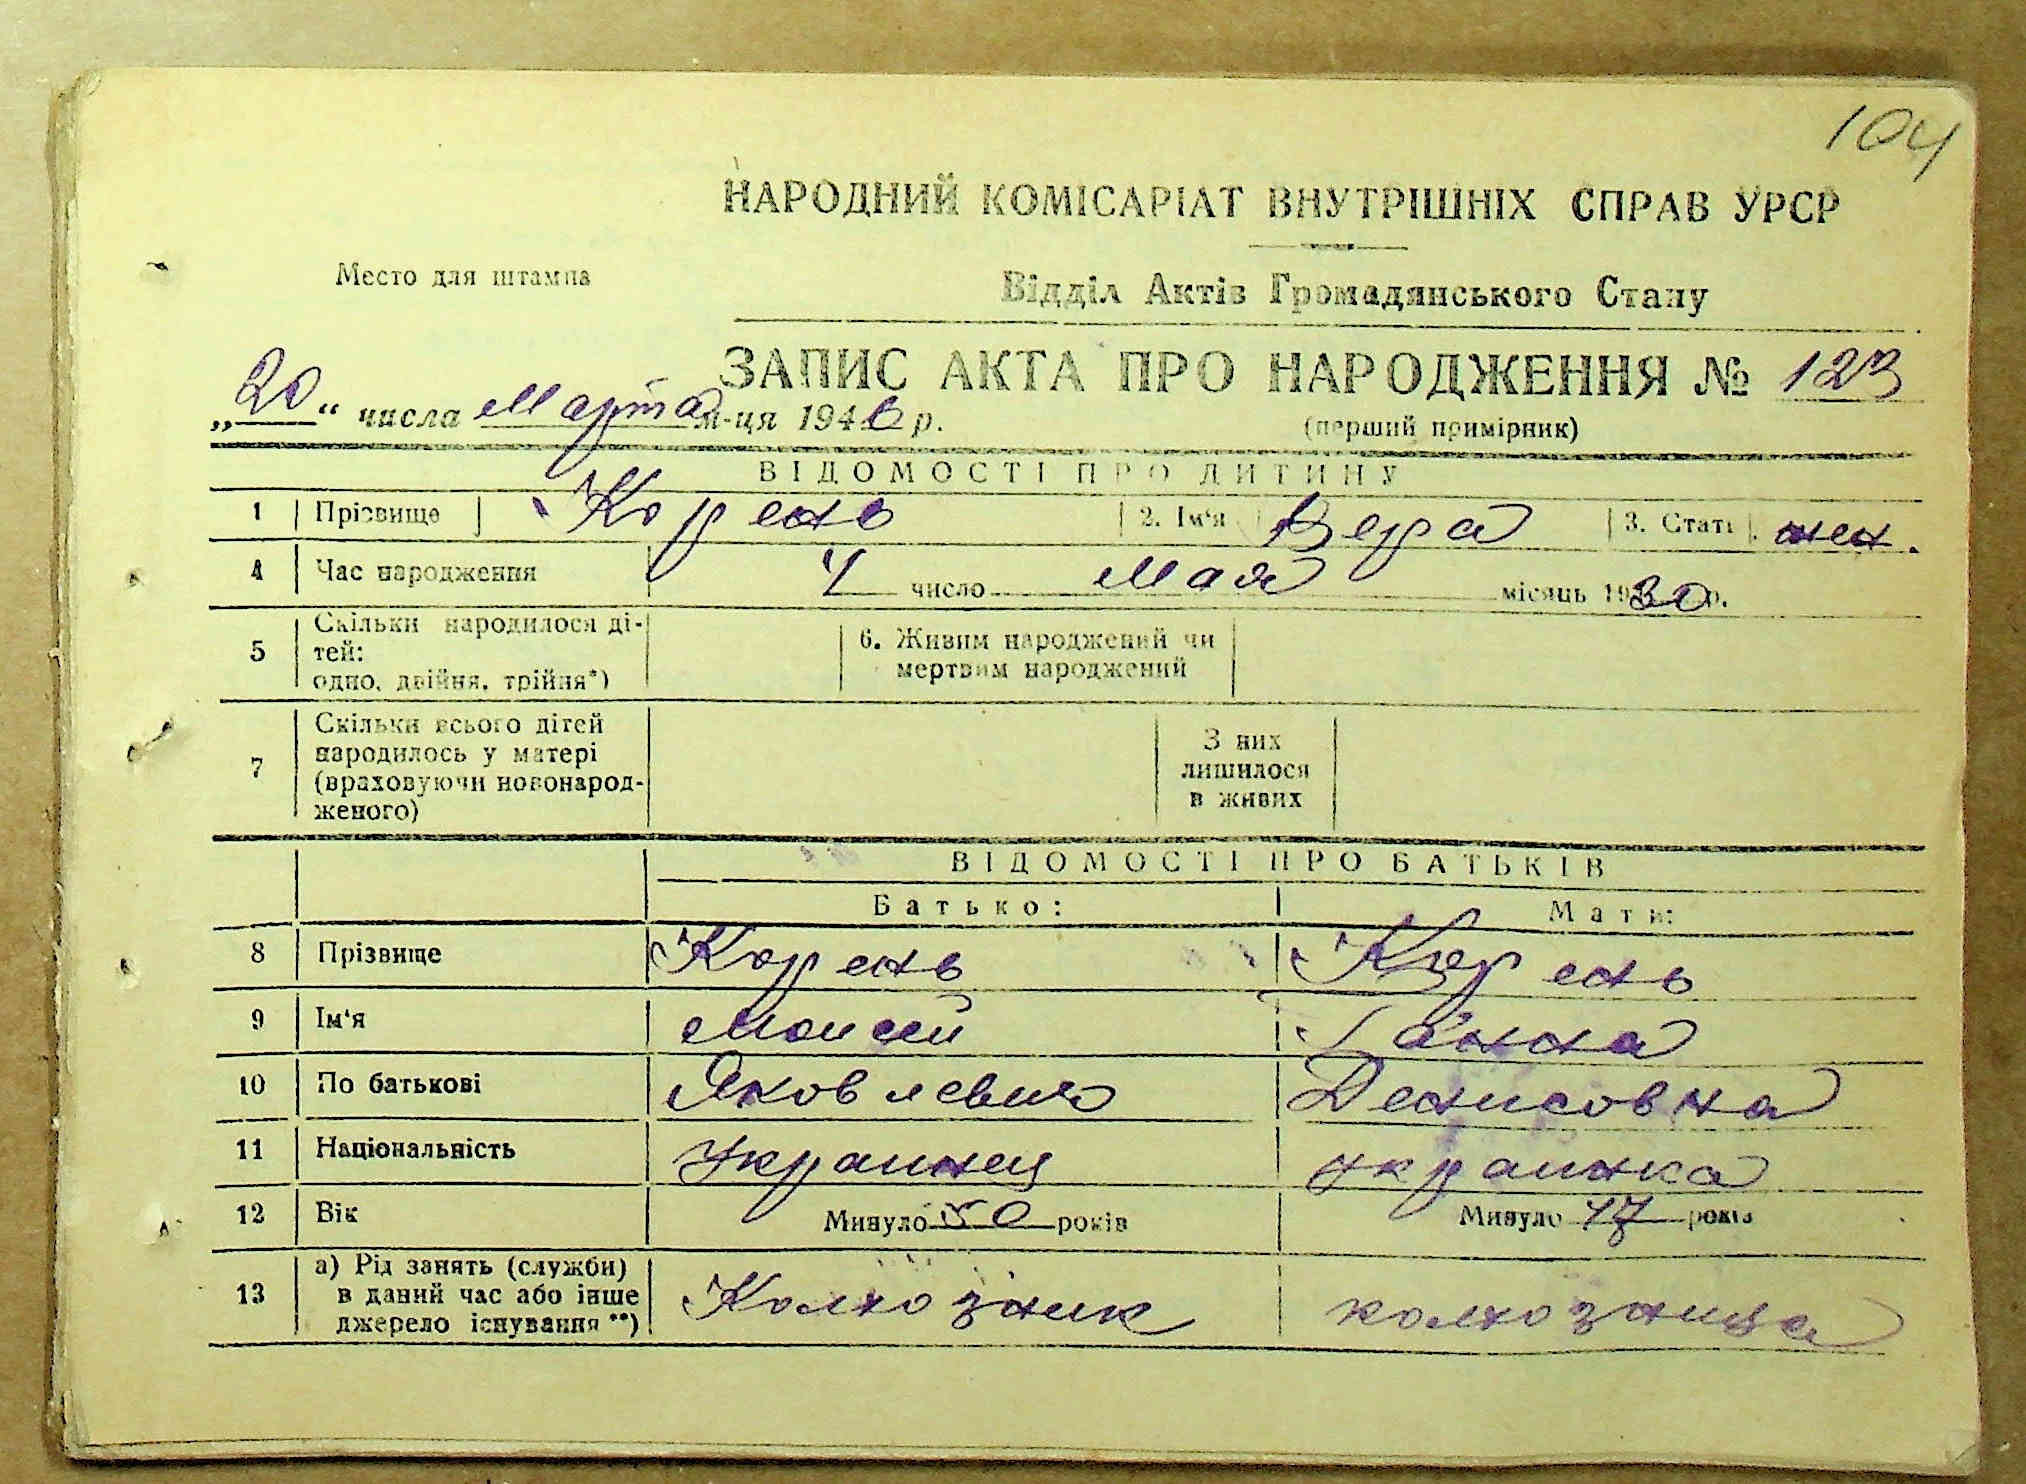 104
НАРОДНИЙ КОМІСАРІАТ ВНУТРІШНІХ СПРАВ УРСР
Место для штампа
Відділ Актів Громадянського Стану
ЗАПИС АКТА ПРО НАРОДЖЕННЯ № 123
„20“ числа Марта м-ця 1946 р.
(перший примірник)
ВІДОМОСТІ ПРО ДИТИНУ
1 Прізвище Корень 2. Ім'я Вера 3. Стать жен.
4 Час народження число Мая місяць 1930 р.
5 Скільки народилося ді-
тей:
одно, двійня, трійня*)
6. Живим народжений чи
мертвим народжений
7 Скільки всього дітей
народилось у матері
(враховуючи новонарод-
женого)
З них
лишилося
в живих
ВІДОМОСТІ ПРО БАТЬКІВ
Батько: Мати:
8 Прізвище Корень Корень
9 Ім'я Моисей Ганна
10 По батькові Яковлевич Денисовна
11 Національність Украинец украинка
12 Вік Минуло 50 років Минуло 47 років
13 а) Рід занять (служби)
в даний час або інше
джерело існування **)
Колхозник колхозница